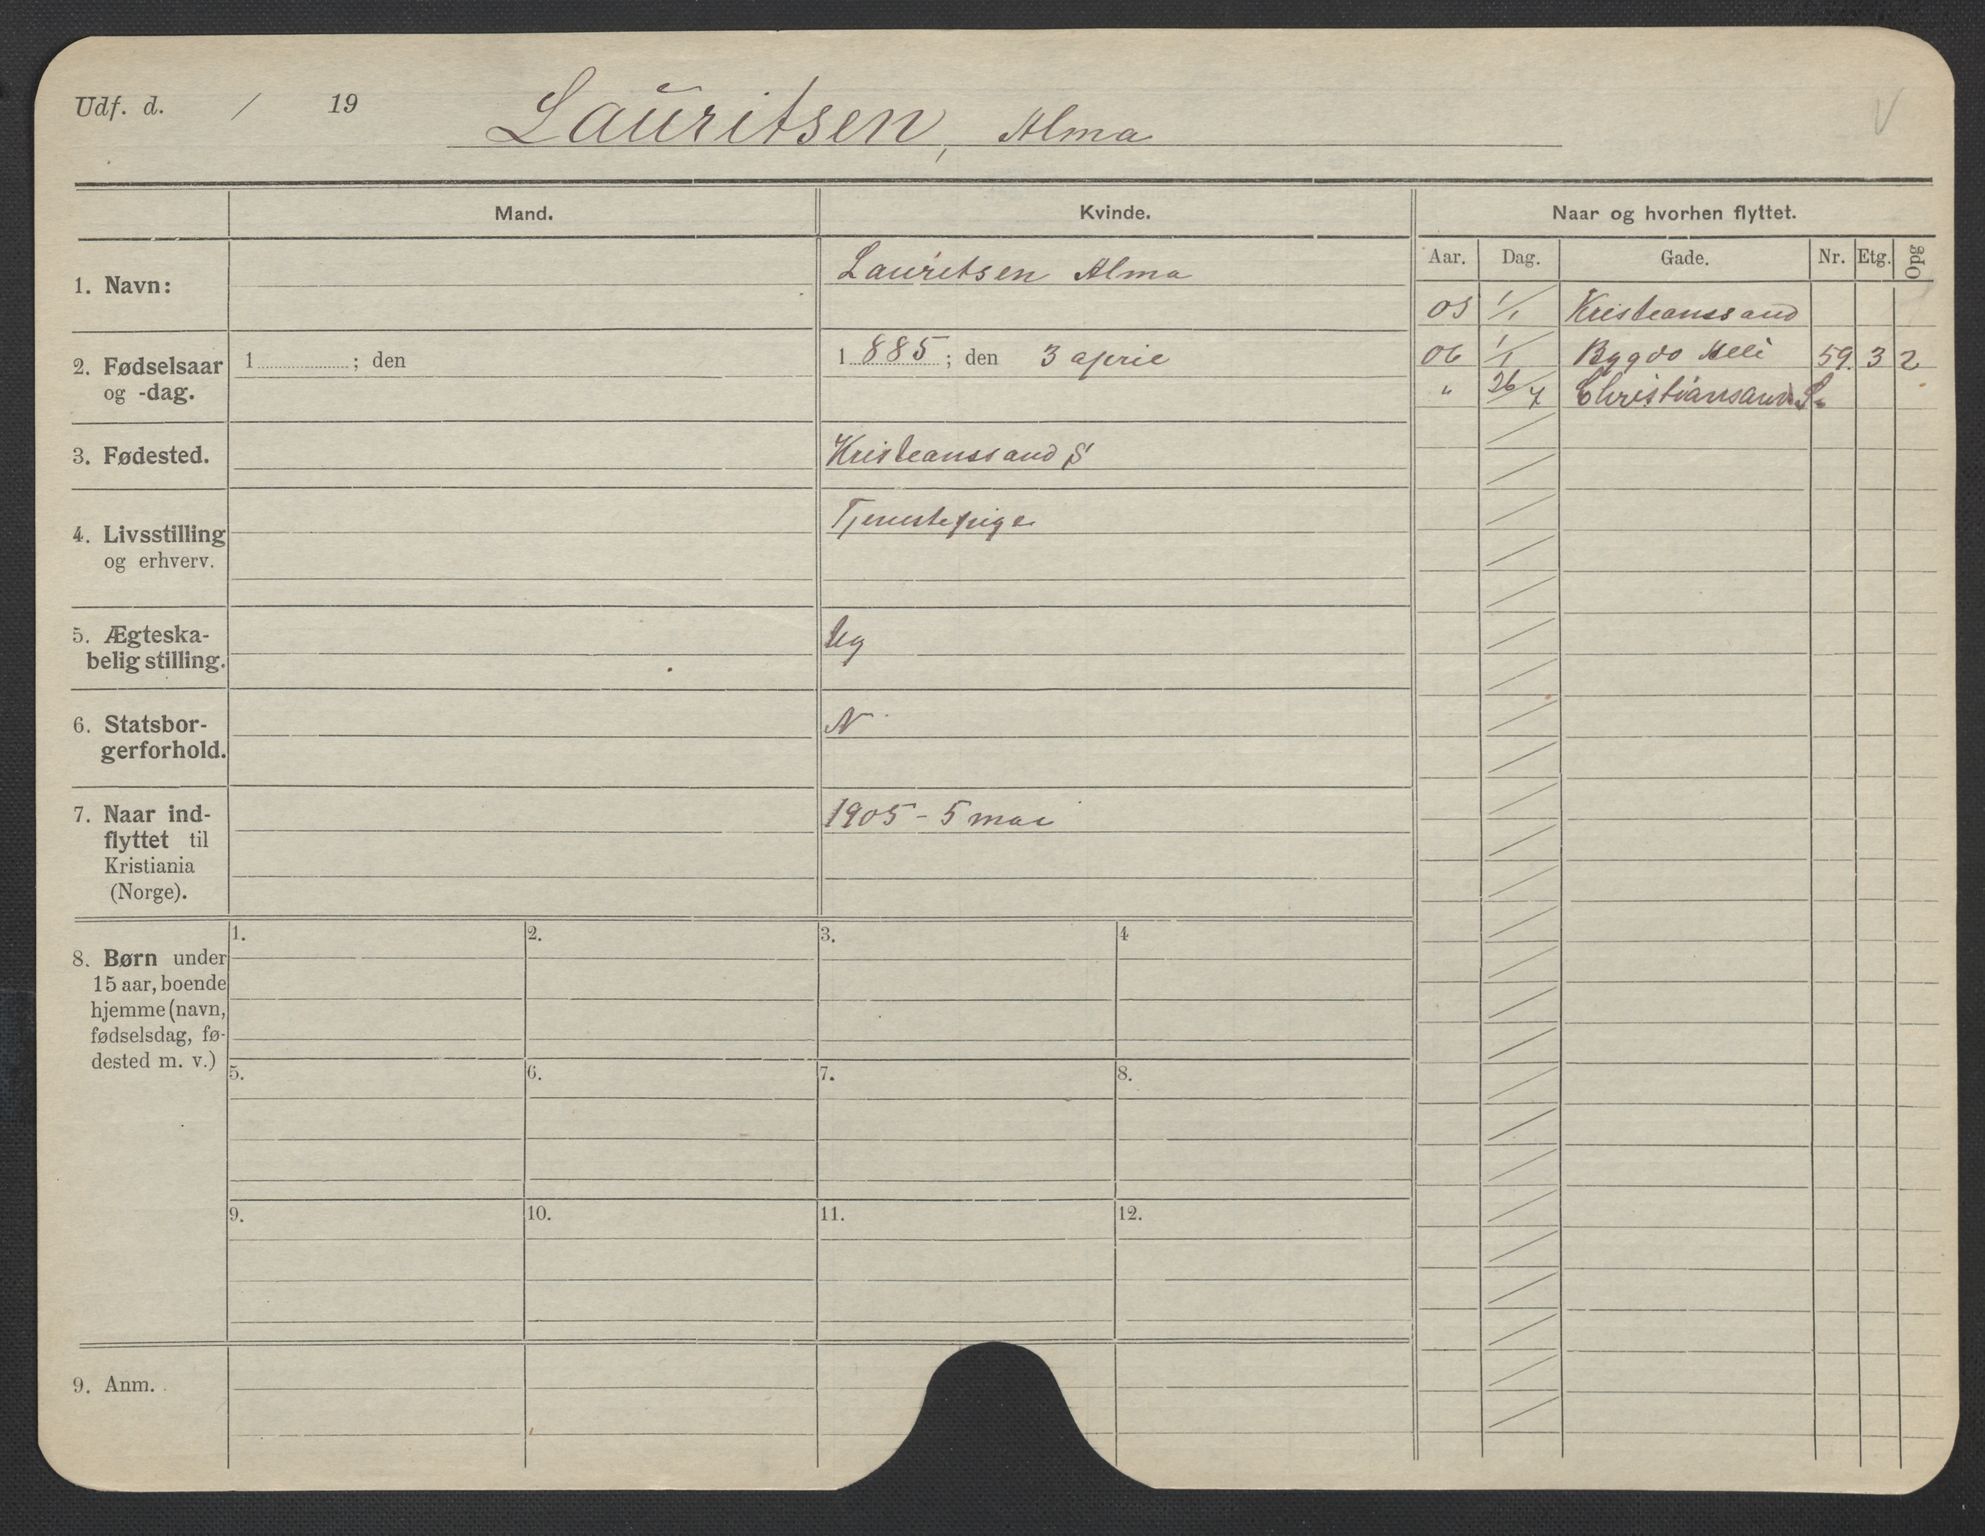 Udf. d. / 19 Lauritsen, Alma
Mand. Kvinde. Naar og hvorhen flyttet.
Aar. Dag. Gade. Nr. Etg. Opg
1. Navn: Lauritsen Alma
05 1/1 Kristianssand
2. Fødselsaar og -dag. 1 ; den 1 885 ; den 3 april
06 1/1 Bygdø Alle 59. 3 2
" 26/7 Christiansand S.
3. Fødested. Kristianssand S
4. Livsstilling og erhverv. Tjenestepige
5. Ægteska-
belig stilling. Ug
6. Statsbor-
gerforhold. N
7. Naar ind-
flyttet til
Kristiania
(Norge). 1905 - 5 mai
8. Børn under
15 aar, boende
hjemme (navn,
fødselsdag, fø-
dested m. v.)
1. 2. 3. 4
5. 6. 7. 8.
9. 10. 11. 12.
9. Anm.